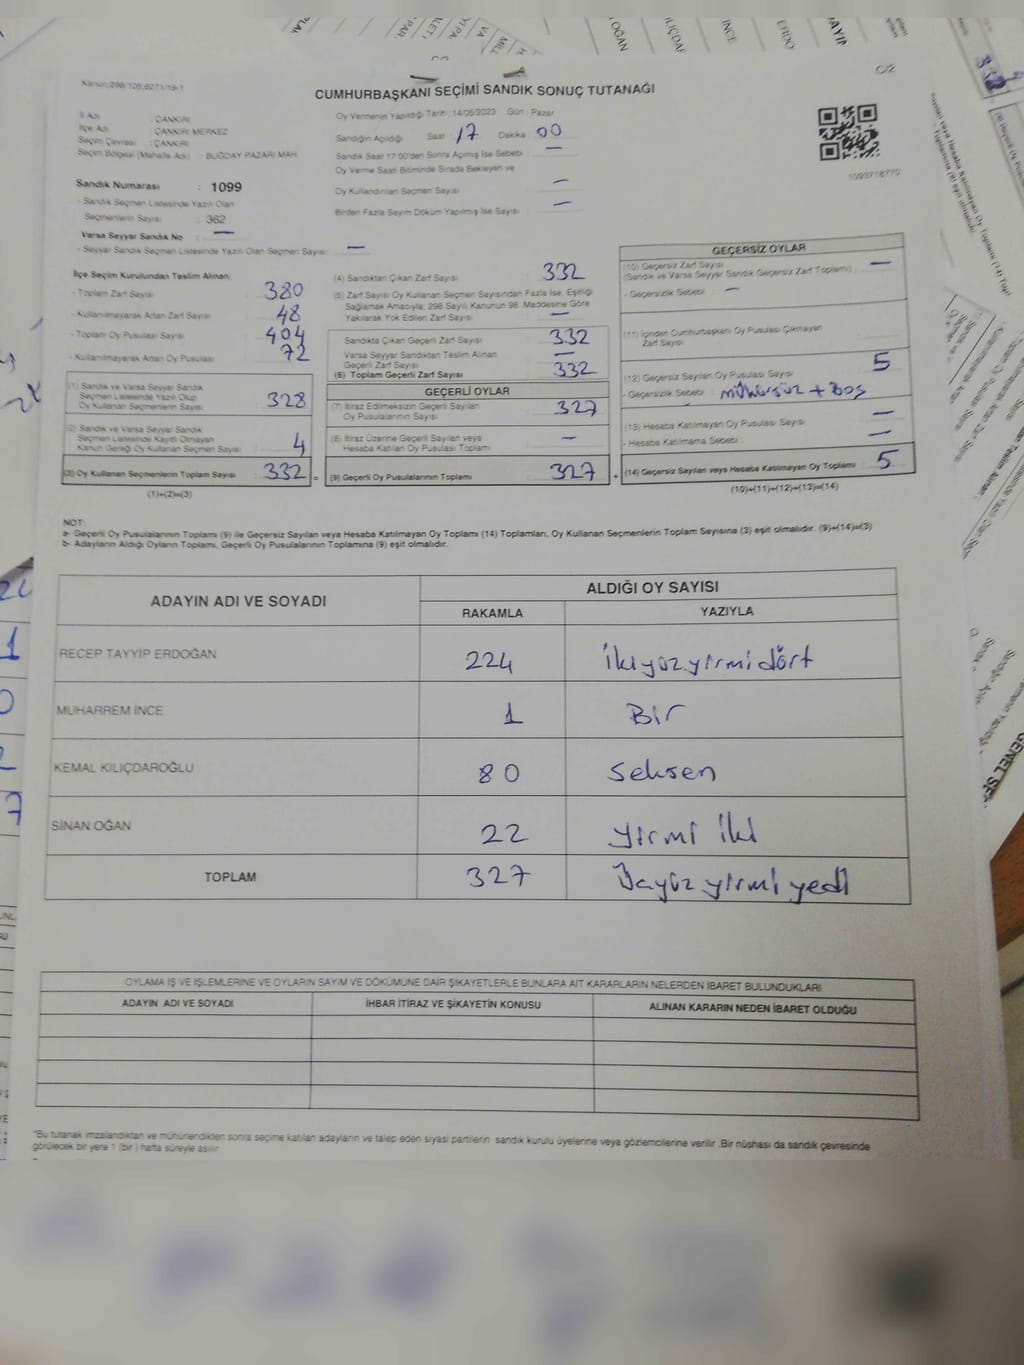 C/2
Kanun:298/105,6271/18-1
CUMHURBAŞKANI SEÇİMİ SANDIK SONUÇ TUTANAĞI
İl Adı : ÇANKIRI
İlçe Adı : ÇANKIRI MERKEZ
Seçim Çevresi : ÇANKIRI
Seçim Bölgesi (Mahalle Adı) : BUĞDAY PAZARI MAH.
Sandık Numarası : 1099
- Sandık Seçmen Listesinde Yazılı Olan
Seçmenlerin Sayısı : 362
Varsa Seyyar Sandık No : —
- Seyyar Sandık Seçmen Listesinde Yazılı Olan Seçmen Sayısı: —
Oy Vermenin Yapıldığı Tarih :14/05/2023 Gün : Pazar
Sandığın Açıldığı Saat : 17 Dakika 00
Sandık Saat 17:00'den Sonra Açımış İse Sebebi : —
Oy Verme Saati Bitiminde Sırada Bekleyen ve
Oy Kullandırılan Seçmen Sayısı : —
Birden Fazla Sayım Döküm Yapılmış İse Sayısı : —
1093718770
İlçe Seçim Kurulundan Teslim Alınan:
- Toplam Zarf Sayısı : 380
- Kullanılmayarak Artan Zarf Sayısı : 48
- Toplam Oy Pusulası Sayısı : 404
- Kullanılmayarak Artan Oy Pusulası : 72
(1) Sandık ve Varsa Seyyar Sandık
Seçmen Listesinde Yazılı Olup
Oy Kullanan Seçmenlerin Sayısı : 328
(2) Sandık ve Varsa Seyyar Sandık
Seçmen Listesinde Kayıtlı Olmayan
Kanun Gereği Oy Kullanan Seçmen Sayısı : 4
(3) Oy Kullanan Seçmenlerin Toplam Sayısı : 332 =
(1)+(2)=(3)
(4) Sandıktan Çıkan Zarf Sayısı : 332
(5) Zarf Sayısı Oy Kullanan Seçmen Sayısından Fazla İse, Eşitliği
Sağlamak Amacıyla; 298 Sayılı Kanunun 98. Maddesine Göre
Yakılarak Yok Edilen Zarf Sayısı : —
Sandıkta Çıkan Geçerli Zarf Sayısı : 332
Varsa Seyyar Sandıktan Teslim Alınan
Geçerli Zarf Sayısı : —
(6) Toplam Geçerli Zarf Sayısı : 332
GEÇERLİ OYLAR
(7) İtiraz Edilmeksizin Geçerli Sayılan
Oy Pusulalarının Sayısı : 327
(8) İtiraz Üzerine Geçerli Sayılan veya
Hesaba Katılan Oy Pusulası Toplamı : —
(9) Geçerli Oy Pusulalarının Toplamı : 327 +
GEÇERSİZ OYLAR
(10) Geçersiz Zarf Sayısı
(Sandık ve Varsa Seyyar Sandık Geçersiz Zarf Toplamı) : —
- Geçersizlik Sebebi : —
(11) İçinden Cumhurbaşkanı Oy Pusulası Çıkmayan
Zarf Sayısı :
(12) Geçersiz Sayılan Oy Pusulası Sayısı : 5
- Geçersizlik Sebebi : mühürsüz + Boş
(13) Hesaba Katılmayan Oy Pusulası Sayısı : —
- Hesaba Katılmama Sebebi : —
(14) Geçersiz Sayılan veya Hesaba Katılmayan Oy Toplamı : 5
(10)+(11)+(12)+(13)=(14)
NOT:
a- Geçerli Oy Pusulalarının Toplamı (9) ile Geçersiz Sayılan veya Hesaba Katılmayan Oy Toplamı (14) Toplamları, Oy Kullanan Seçmenlerin Toplam Sayısına (3) eşit olmalıdır. (9)+(14)=(3)
b- Adayların Aldığı Oyların Toplamı, Geçerli Oy Pusulalarının Toplamına (9) eşit olmalıdır.
ADAYIN ADI VE SOYADI
ALDIĞI OY SAYISI
RAKAMLA YAZIYLA
RECEP TAYYİP ERDOĞAN 224 İkiyüzyirmidört
MUHARREM İNCE 1 Bir
KEMAL KILIÇDAROĞLU 80 Seksen
SİNAN OĞAN 22 yirmi iki
TOPLAM 327 Üçyüzyirmi yedi
OYLAMA İŞ VE İŞLEMLERİNE VE OYLARIN SAYIM VE DÖKÜMÜNE DAİR ŞİKAYETLERLE BUNLARA AİT KARARLARIN NELERDEN İBARET BULUNDUKLARI
ADAYIN ADI VE SOYADI İHBAR İTİRAZ VE ŞİKAYETİN KONUSU ALINAN KARARIN NEDEN İBARET OLDUĞU
*Bu tutanak imzalandıktan ve mühürlendikten sonra seçime katılan adayların ve talep eden siyasi partilerin sandık kurulu üyelerine veya gözlemcilerine verilir .Bir nüshası da sandık çevresinde
görülecek bir yere 1 (bir ) hafta süreyle asılır.